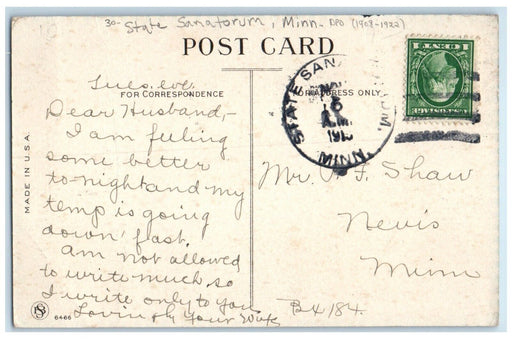 30- State Sanatorum, Minn. DPO (1908-1922)
POST CARD
Tues. eve.
FOR CORRESPONDENCE
FOR ADDRESS ONLY
Dear Husband,-
I am feeling
some better
to-night and my
temp is going
down fast.
am not allowed
to write much so
I write only to you
Lovingly your Wife
MADE IN U.S.A.
6466
STATE SANATORIUM.
NOV
16
A.M.
MINN.
Mr. F. Shaw
Nevis
Minn
BX 184.